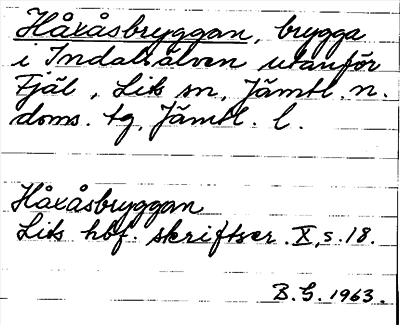 Håxåsbryggan, brygga
i Indalsälven utanför
Fjäl, Lits sn, Jämtl. n.
doms. tg Jämtl. l.
Håxåsbryggan
Lits hbf. skriftser. X, s. 18.
B. G. 1963.